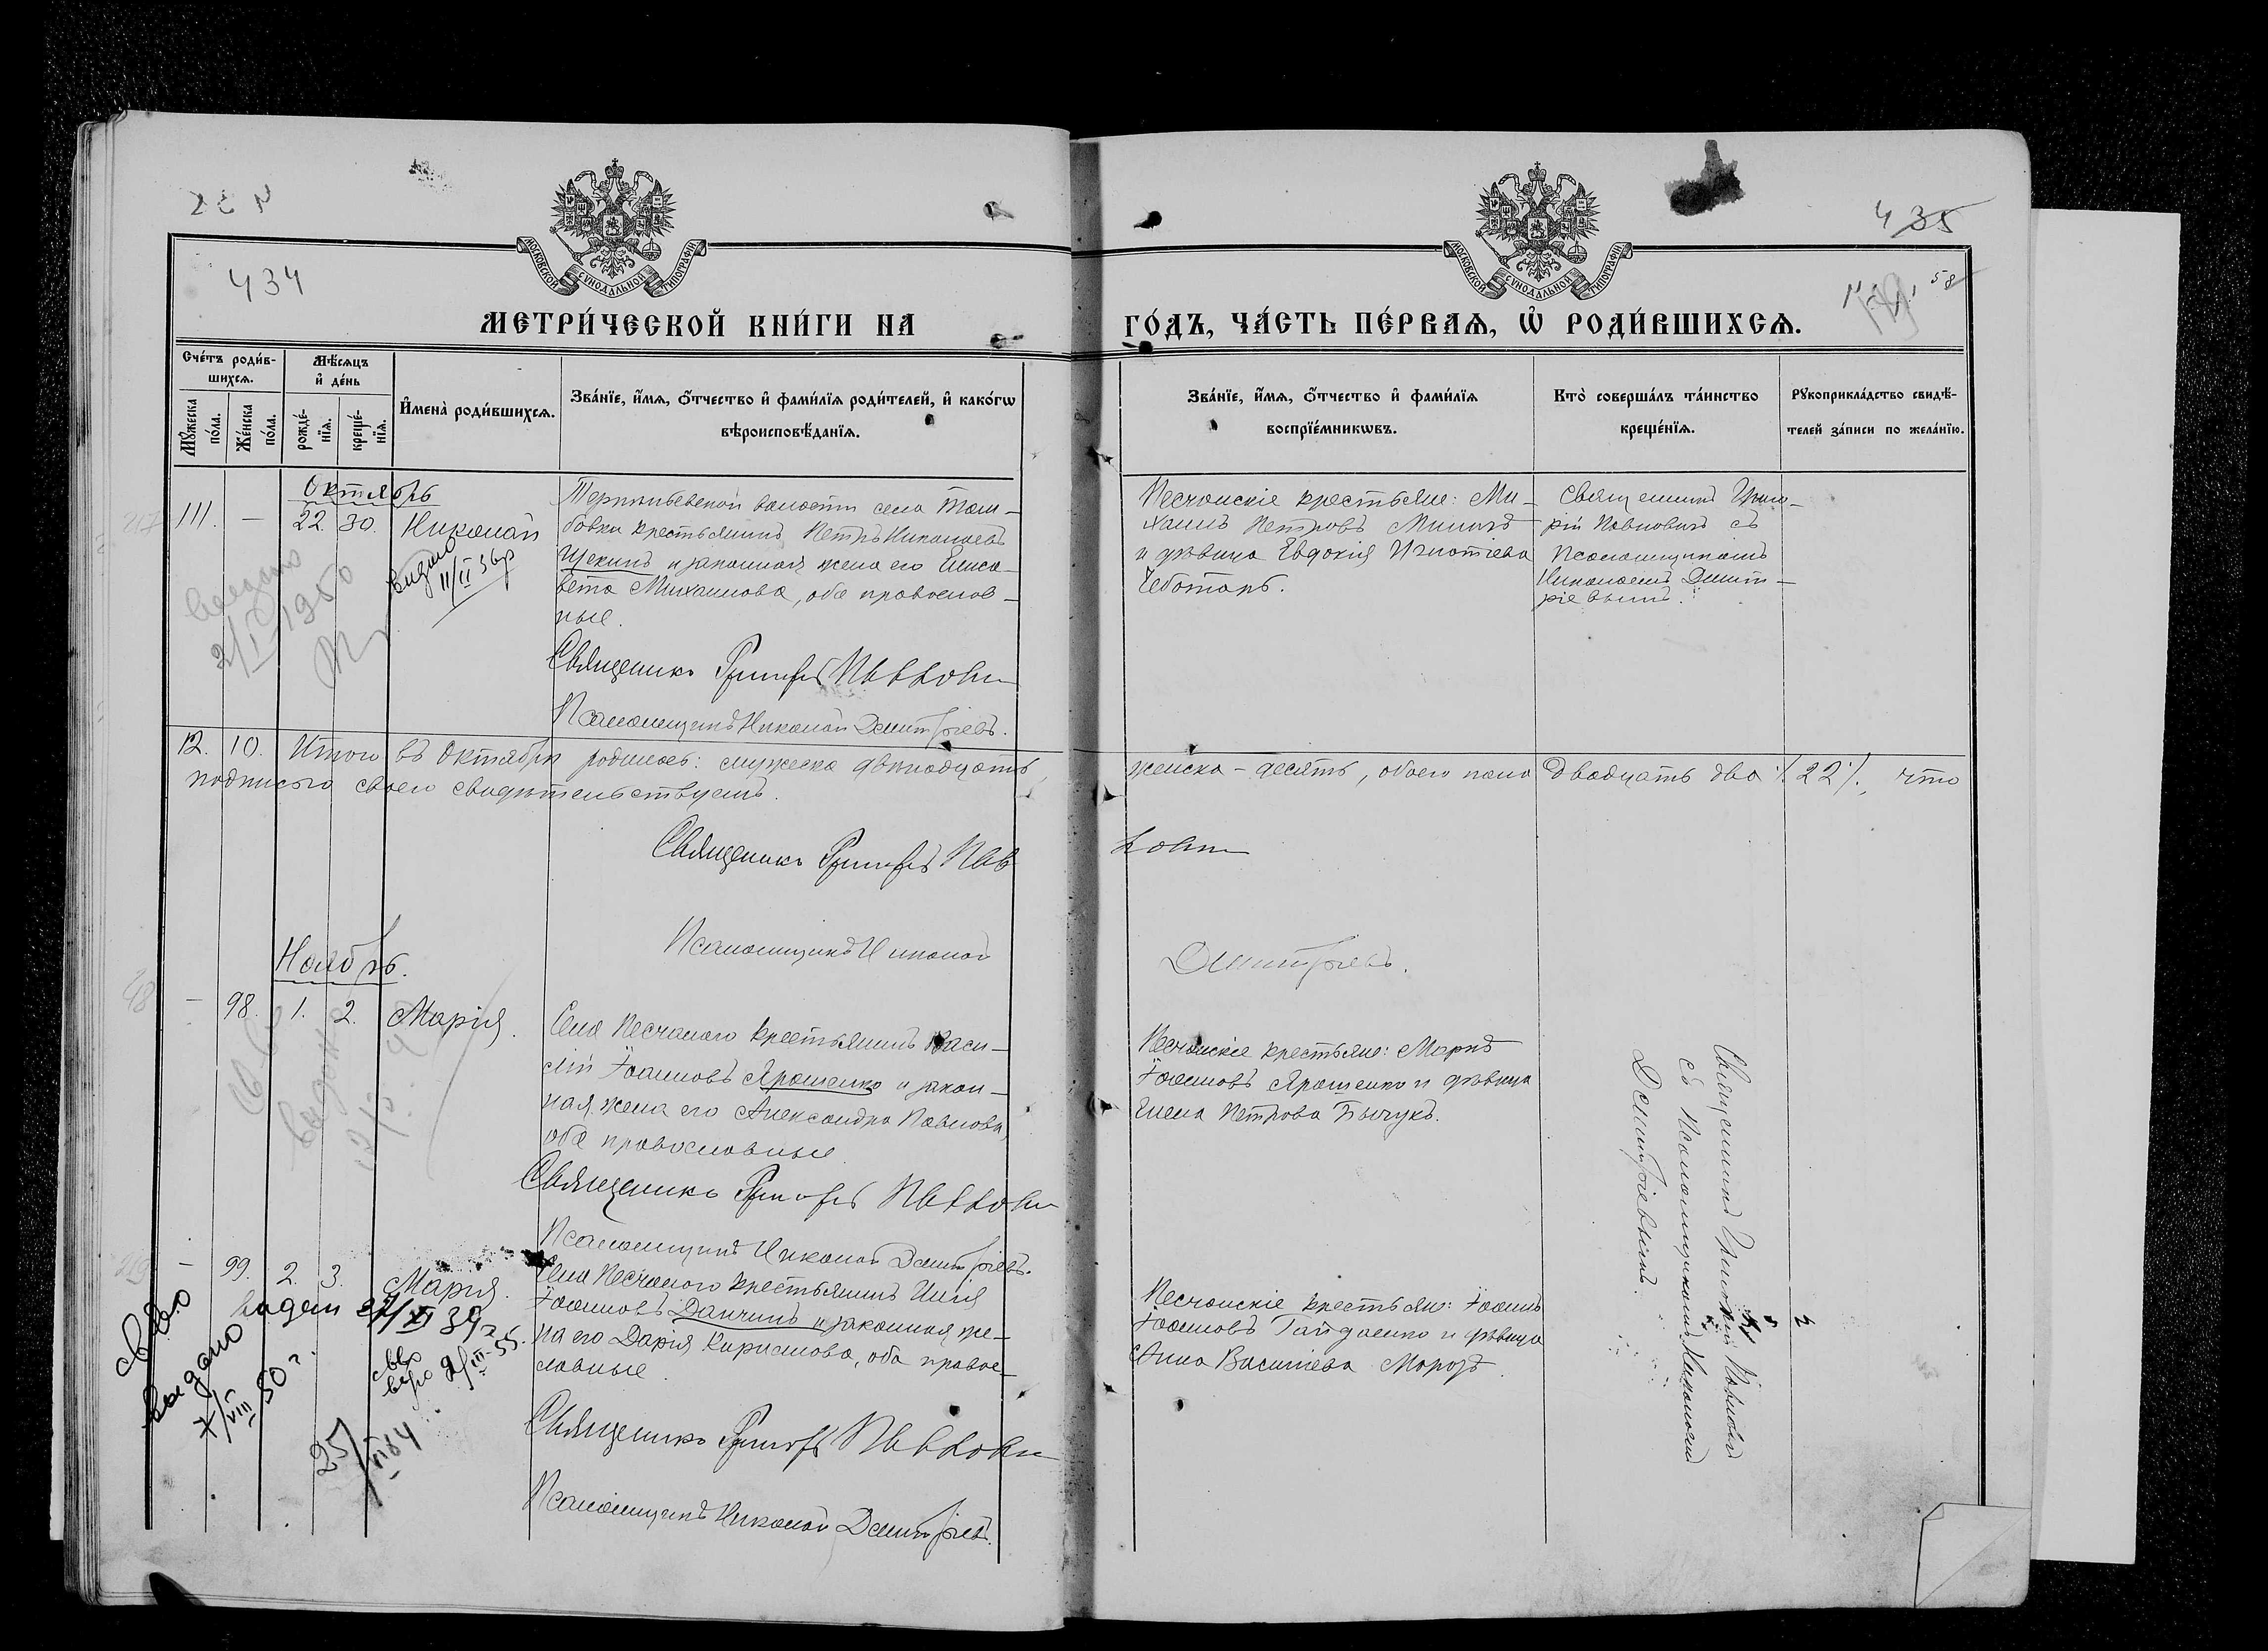 434
435
58
МОСКОВСКОЙ СѴНОДАЛЬНОЙ ТИПОГРАФІИ
МОСКОВСКОЙ СѴНОДАЛЬНОЙ ТИПОГРАФІИ
МЕТРИ́ЧЕСКОЙ КНИ́ГИ НА
ГО́ДЪ, ЧА́СТЬ ПЕ́РВАѦ, Ѡ҆ РОДИ́ВШИХСѦ.
Сче́тъ роди́в-
шихсѧ.
Мꙋжеска по́ла.
Же́нска по́ла.
Мѣ́сѧцъ
и҆ де́нь
рожде́-
нїѧ.
креще́-
нїѧ.
И҆мена̀ роди́вшихсѧ.
Зва́нїе, и҆́мѧ, ѻ҆́тчество и҆ фами́лїѧ роди́телей, и҆ како́гѡ
вѣроисповѣ́данїѧ.
Зва́нїе, и҆́мѧ, ѻ҆́тчество и҆ фами́лїѧ
воспрїе́мникѡвъ.
Кто̀ соверша́лъ та́инство
креще́нїѧ.
Рꙋкоприкла́дство свидѣ́-
телей за́писи по жела́нїю.
Октябрь
111. — 22. 30. Николай
волости села Там-
бовки крестьянинъ Петръ Николаевъ
Щекинъ и законная жена его Елиса-
вета Михаилова, оба православ-
ные.
Священникъ Григорій Павлович
Псаломщикъ Николай Дмитріевъ.
Песчанскіе крестьяне: Ми-
хаилъ Петровъ
и дѣвица Евдокія Игнатіева
Чеботарь.
Священникъ Григо-
рій Павловичъ съ
Псаломщикомъ
Николаемъ Дмит-
ріевымъ.
выдано
2/I 1950
видано
11/II 36р
12. 10. Итого въ Октябрѣ родилось: мужеска двѣнадцать,
женска - десять, обоего пола двадцать два /22/, что
подписью своею свидѣтельствуемъ.
Священникъ Григорій Павлович
Псаломщикъ Николай Дмитріевъ.
Ноябрь.
— 98. 1. 2. Марія.
Села Песчаного крестьянинъ Васи-
лій Іоанновъ Ярошенко и закон-
ная жена его Александра Павлова,
оба православные
Священникъ Григорій Павлович
Псаломщикъ Николай Дмитріевъ.
Песчанскіе крестьяне: Маркъ
Іоанновъ Ярошенко и дѣвица
Елена Петрова Бычукъ.
Священникъ Григорій Павловичъ
съ Псаломщикомъ Николаемъ
Дмитріевымъ.
— 99. 2. 3. Марія.
Села Песчаного крестьянинъ Илія
Іоанновъ Данчинъ и законная же-
на его Дарія Кириллова, оба право-
славные.
Священникъ Григорій Павлович
Псаломщикъ Николай Дмитріевъ.
Песчанскіе крестьяне: Іоаннъ
Іоанновъ Гайдаенко и дѣвица
Анна Василіева Морозъ.
27/XI 39
св-во
выдано
7/VIII 50 г.
2/III 55.
25/VI 64